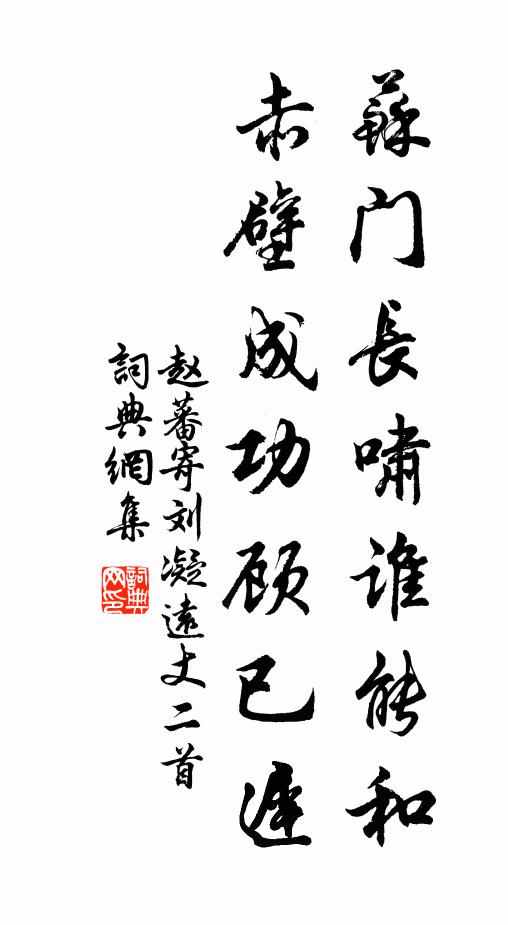 蘇门長啸谁能和
赤壁成功顾已遲
赵蕃寄刘凝遠丈二首
詞典網集
詞典网印